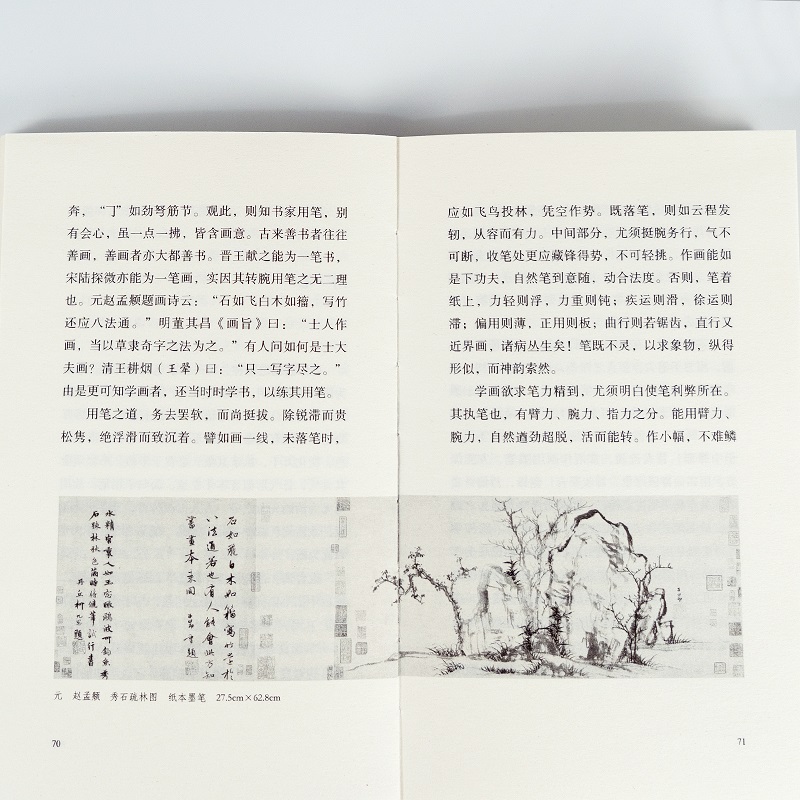 奔，“丁”如劲弩筋节。观此，则知书家用笔，别
有会心，虽一点一拂，皆含画意。古来善书者往往
善画，善画者亦大都善书。晋王献之能为一笔书，
宋陆探微亦能为一笔画，实因其转腕用笔之无二理
也。元赵孟頫题画诗云：“石如飞白木如籀，写竹
还应八法通。”明董其昌《画旨》曰：“士人作
画，当以草隶奇字之法为之。”有人问如何是士大
夫画？清王耕烟（王翚）曰：“只一写字尽之。”
由是更可知学画者，还当时时学书，以练其用笔。
用笔之道，务去罢软，而尚挺拔。除锐滞而贵
松隽，绝浮滑而致沉着。譬如画一线，未落笔时，
石如飛白木如籀寫竹還於
八法通若也有人能會此方知
書畫本來同
元 赵孟頫 秀石疏林图 纸本墨笔 27.5cm×62.8cm
70
应如飞鸟投林，凭空作势。既落笔，则如云程发
轫，从容而有力。中间部分，尤须挺腕务行，气不
可断，收笔处更应藏锋得势，不可轻挑。作画能如
是下功夫，自然笔到意随，动合法度。否则，笔着
纸上，力轻则浮，力重则钝；疾运则滑，徐运则
滞；偏用则薄，正用则板；曲行则若锯齿，直行又
近界画，诸病丛生矣！笔既不灵，以求象物，纵得
形似，而神韵索然。
学画欲求笔力精到，尤须明白使笔利弊所在。
其执笔也，有臂力、腕力、指力之分。能用臂力、
腕力，自然遒劲超脱，活而能转。作小幅，不难鳞
71